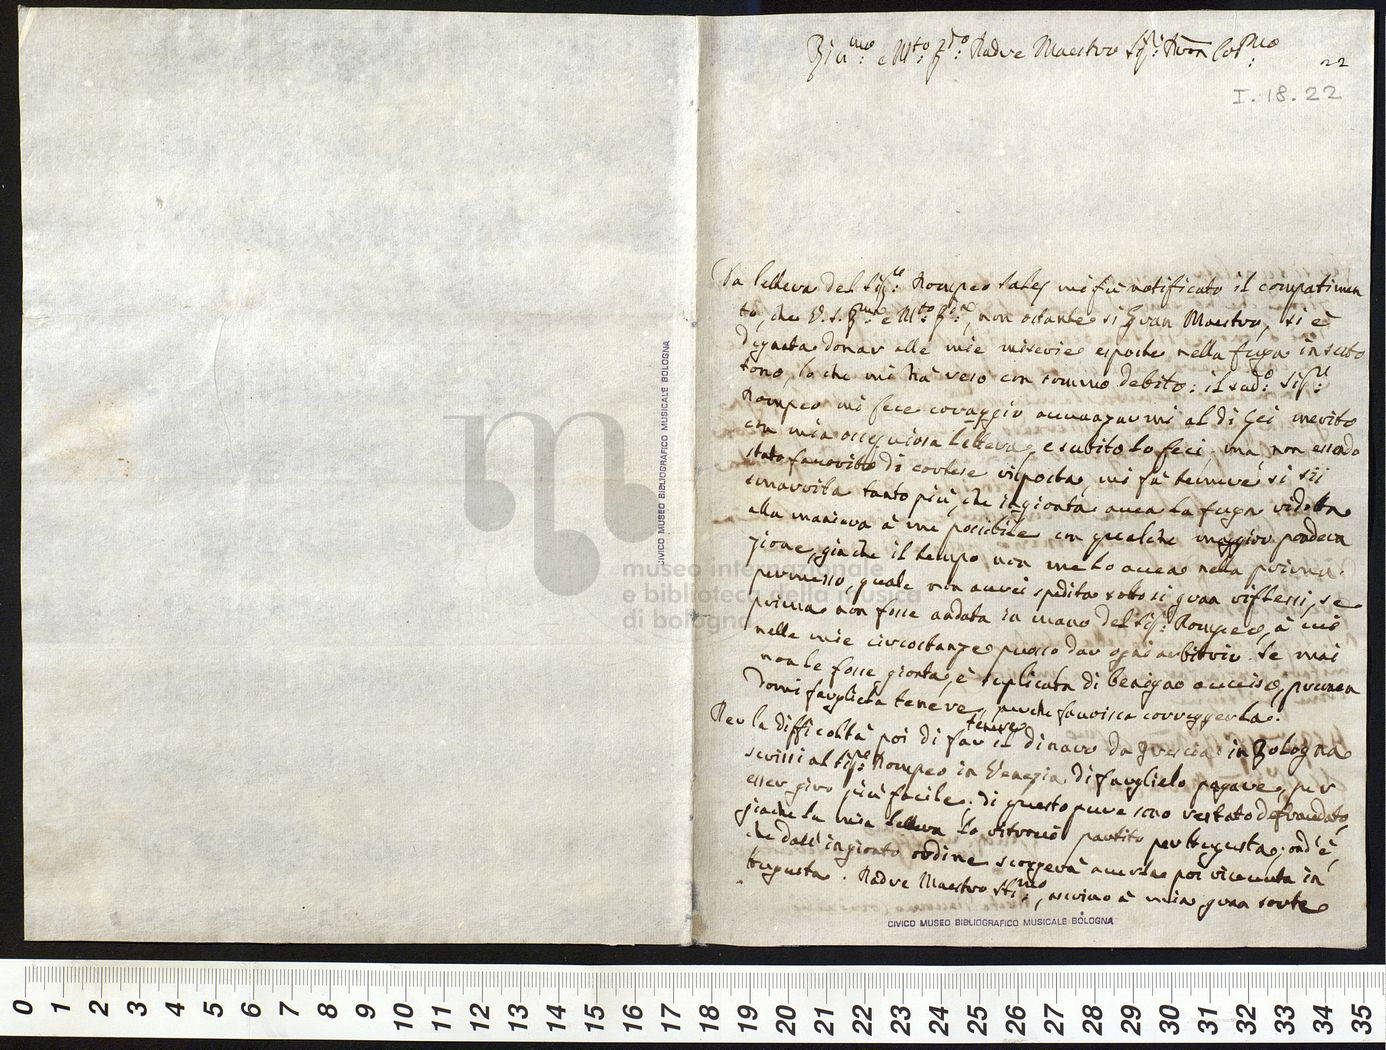 Riv.mo e M.to R.do Padre Maestro Sig.r Pron Col.mo
22
I.18.22
Da lettera del Sig.re Pompeo Sales mi fù notificato il compatimen
to, che V.S. R.ma e M.to R.da, non ostante si gran Maestro, si è
degnata donar alle mie miserie esposte nella fuga in sesto
tono, lo che mi hà reso con sommo debito: il sud.o Sig.re
Pompeo mi fece coraggio avvanzarmi al di Lei merito
con mia ossequiosa lettera, e subito lo feci: ma non essendo
stato favorito di cortese risposta, mi fà temere si sii
smarrita tanto più, che ingionta avea la fuga ridotta
alla maniera à me possibile con qualche maggior pondera
zione, giache il tempo non me lo avea nella prima
permesso, quale non avrei spedita sotto si gran riflessi, se
prima non fosse andata in mano del Sig.r Pompeo, à cui
nelle mie circostanze posso dar ogni arbitrio. Se mai
non le fosse gionta, è suplicata di benigno avviso, premen
domi fargliela tenere, perche favorisca correggerla.
Per la difficoltà poi di far tenere il dinaro da Brescia in Bologna
scrissi al Sig.re Pompeo in Venezia di farglielo pagare, per
esser giro più facile; di questo pure sono restato defraudato,
giache la mia lettera lo ritrovò partito per Augusta; ond'è,
che dall'ingionto ordine scorgerà averla poi ricevuta in
Augusta. Padre Maestro Sti.mo, ascrivo à mia gran sorte
CIVICO MUSEO BIBLIOGRAFICO MUSICALE BOLOGNA
CIVICO MUSEO BIBLIOGRAFICO MUSICALE BOLOGNA
museo internazionale
e biblioteca della musica
di bologna
0 1 2 3 4 5 6 7 8 9 10 11 12 13 14 15 16 17 18 19 20 21 22 23 24 25 26 27 28 29 30 31 32 33 34 35